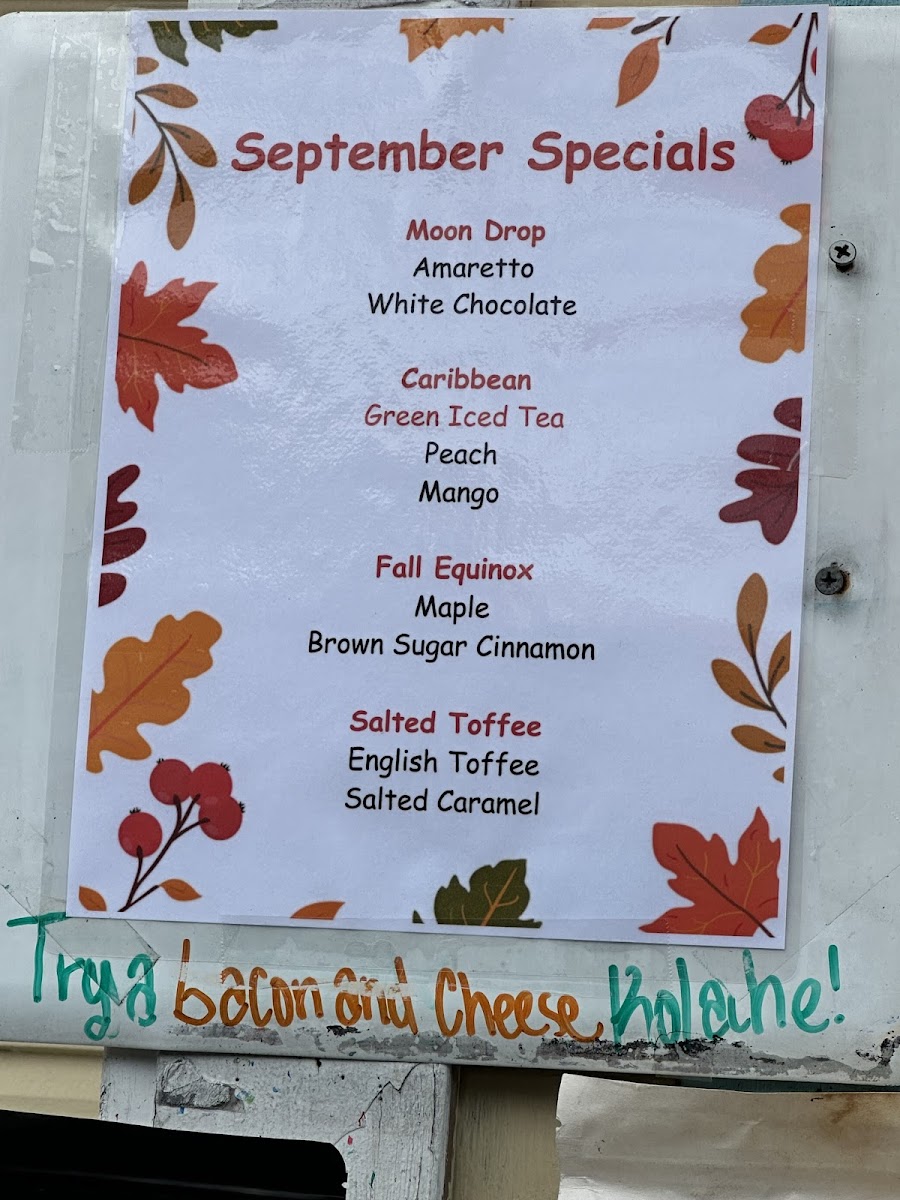 September Specials
Moon Drop
Amaretto
White Chocolate
Caribbean
Green Iced Tea
Peach
Mango
Fall Equinox
Maple
Brown Sugar Cinnamon
Salted Toffee
English Toffee
Salted Caramel
Try a bacon and Cheese Kolache!